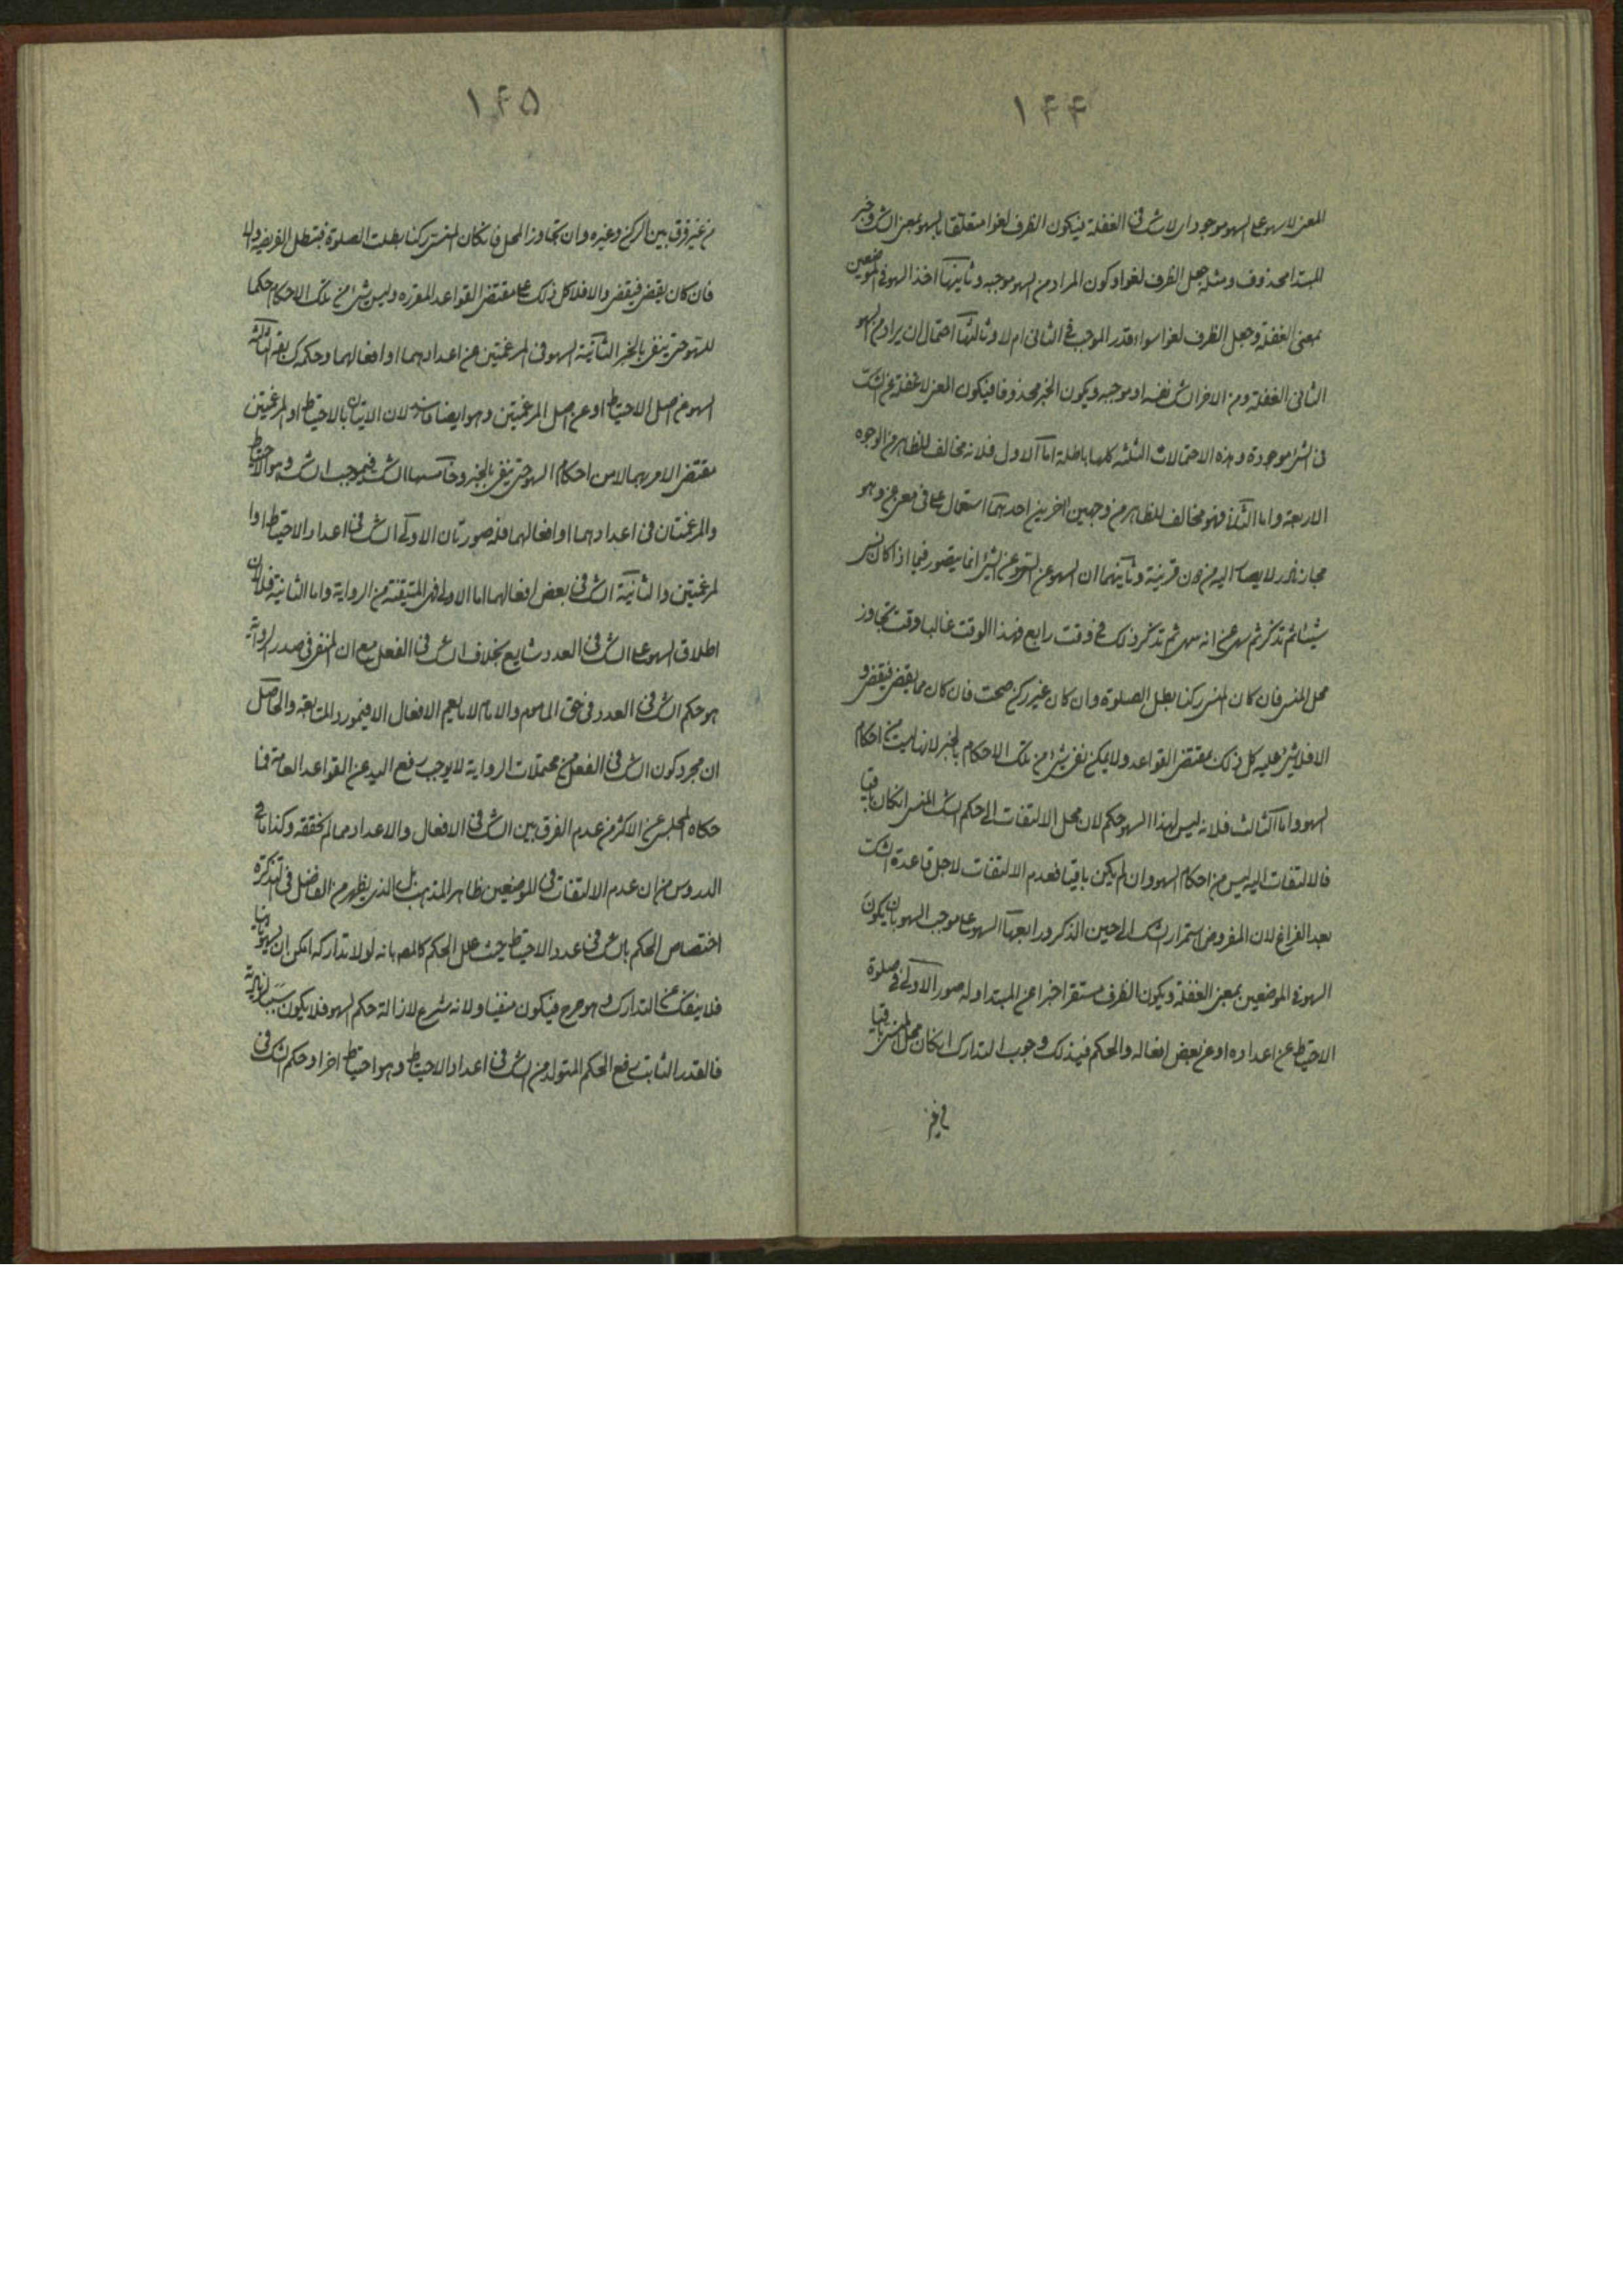 ١٤٤
المعنى لا سهو على السهو موجود اى لا شك فى الغفلة فيكون الظرف لغوا متعلقا بالسهو بمعنى الشك وخبر
المبتدا محذوف ومثله جعل الظرف لغوا وكون المراد من السهو موجبه وثانيها اخذ السهو فى الموضعين
بمعنى الغفلة وجعل الظرف لغوا سواء قدر الموجب فى الثانى ام لا وثالثها احتمال ان يراد من السهو
الثانى الغفلة ومن الاخر الشك نفسه او موجبه ويكون الخبر محذوفا فيكون المعنى لا غفلة عن الشك
فى الشىء موجودة وهذه الاحتمالات الثلثه كلها باطلة اما الاول فلانه مخالف للظاهر من الوجوه
الاربعة واما الثانى فهو مخالف للظاهر من وجهين اخرين احدهما استعمال على فى معنى عن وهو
مجاز نادر لا يصار اليه من دون قرينة وثانيهما ان السهو عن السهو عن الشىء انما يتصور فيما اذا كان نسى
شيئا ثم تذكر ثم سهى عن انه سهى ثم تذكر ذلك فى وقت رابع فهذا الوقت غالبا وقت تجاوز
محل المنسى فان كان المنسى ركنا بطل الصلوة وان كان غير ركن صحت فان كان مما يقضى فيقضى و
الا فلا شىء عليه كل ذلك بمقتضى القواعد ولا يمكن نفى شىء من تلك الاحكام بالخبر لانها ليست من احكام
السهو واما الثالث فلانه ليس لهذا السهو حكم لان محل الالتفات الى حكم الشك المنسى ان كان باقيا
فالالتفات اليه ليس من احكام السهو وان لم يكن باقيا فعدم الالتفات لاجل قاعدة الشك
بعد الفراغ لان المفروض استمرار الشك الى حين الذكر ورابعها السهو على موجب السهو بان يكون
السهو فى الموضعين بمعنى الغفلة ويكون الظرف مستقرا خبرا عن المبتدا وله صور الاولى فى صلوة
الاحتياط عن اعداده او عن بعض افعاله والحكم فيذلك وجوب التدارك ان كان محل المنسى باقيا
من غير
١٤٥
من غير فرق بين الركن وغيره وان تجاوز المحل فان كان المنسى ركنا بطلت الصلوة فتبطل الفريضه والا
فان كان يقضى فيقضى والا فلا كل ذلك على مقتضى القواعد المقرره وليس شىء من تلك الاحكام حكما
للسهو حتى ينفى بالخبر الثانية السهو فى المرغمتين عن اعدادهما او افعالهما وحكمه كسابقه الثالثة
السهو عن اصل الاحتياط او عن اصل المرغمتين وهو ايضا فاسد لان الاتيان بالاحتياط او المرغمتين
مقتضى الامر بهما لا من احكام السهو حتى ينفى بالخبر وخامسها الشك فيموجب الشك وهو الاحتياط
والمرغمتان فى اعدادهما او افعالهما فله صورتان الاولى الشك فى اعداد الاحتياط او ا
لمرغمتين والثانية الشك فى بعض افعالهما اما الاولى فهى المتيقنة من الرواية واما الثانية فلان
اطلاق السهو على الشك فى العدد شايع بخلاف الشك فى الفعل مع ان المنفى فى صدر الرواية
هو حكم الشك فى العدد فى حق الماموم والامام لا ما يعم الافعال الا فيمورد المتابعة والحاصل
ان مجرد كون الشك فى الفعل من محتملات الرواية لا يوجب رفع اليد عن القواعد العامة فما
حكاه المجلسى عن الاكثر من عدم الفرق بين الشك فى الافعال والاعداد مما لم نحققه وكذا ما فى
الدروس من ان عدم الالتفات فى الموضعين ظاهر المذهب بل الذى يظهر من الفاضل فى التذكرة
اختصاص الحكم بالشك فى عدد الاحتياط حيث علل الحكم كالمصه بانه لو لا تداركه امكن ان يسهو ثانيا
فلا ينفك عن التدارك وهو حرج فيكون منفيا ولانه شرع لازالة حكم السهو فلا يكون سببا لزيادته
فالقدر الثابت رفع الحكم المتولد من الشك فى اعداد الاحتياط وهو احتياط اخر او حكم الشك فى